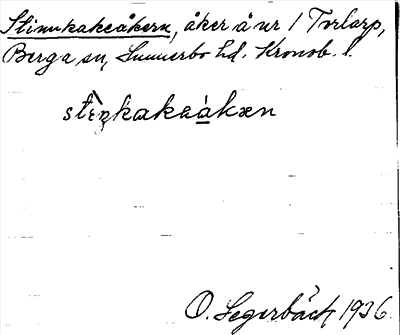 Stinnkakeåkern, åker å nr 1 Torlarp,
Berga sn, Sunnerbo hd. Kronob. l.
stìŋkakaåkæn
O. Segerbäck 1936.